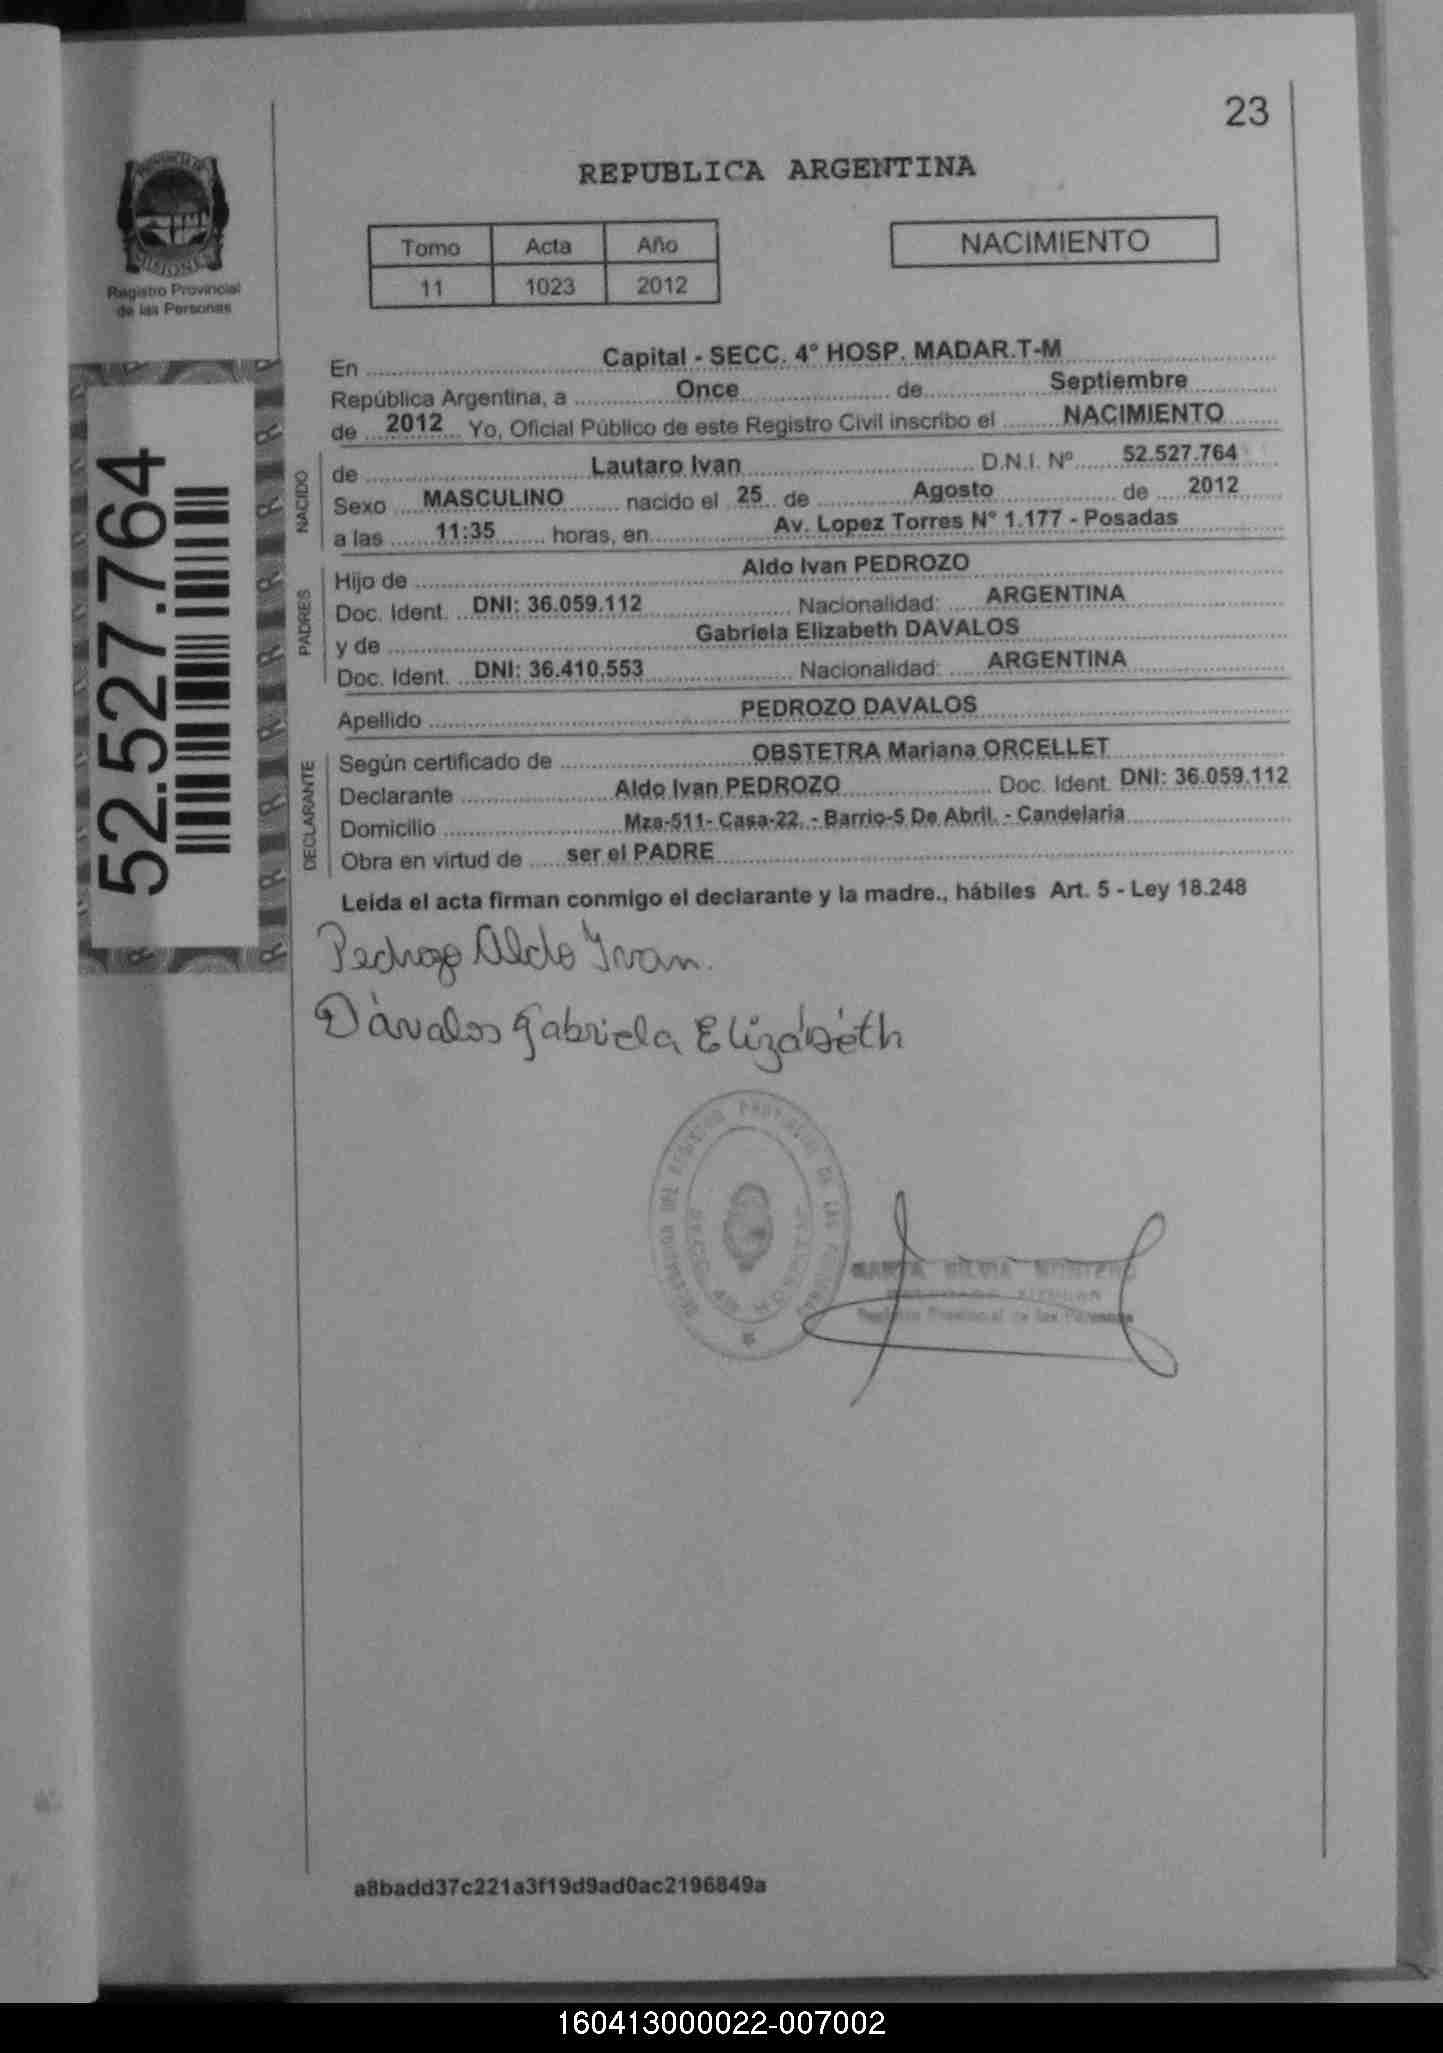 23
REPUBLICA ARGENTINA
PROVINCIA DE MISIONES
Registro Provincial
de las Personas
Tomo Acta Año
11 1023 2012
NACIMIENTO
52.527.764
En Capital - SECC. 4° HOSP. MADAR.T-M
República Argentina, a Once de Septiembre
de 2012 Yo, Oficial Público de este Registro Civil inscribo el NACIMIENTO
NACIDO
de Lautaro Ivan D.N.I. Nº 52.527.764
Sexo MASCULINO nacido el 25 de Agosto de 2012
a las 11:35 horas, en Av. Lopez Torres N° 1.177 - Posadas
PADRES
Hijo de Aldo Ivan PEDROZO
Doc. Ident. DNI: 36.059.112 Nacionalidad: ARGENTINA
y de Gabriela Elizabeth DAVALOS
Doc. Ident. DNI: 36.410.553 Nacionalidad: ARGENTINA
Apellido PEDROZO DAVALOS
DECLARANTE
Según certificado de OBSTETRA Mariana ORCELLET
Declarante Aldo Ivan PEDROZO Doc. Ident. DNI: 36.059.112
Domicilio Mza-511- Casa-22. - Barrio-5 De Abril. - Candelaria
Obra en virtud de ser el PADRE
Leida el acta firman conmigo el declarante y la madre., hábiles Art. 5 - Ley 18.248
Pedrozo Aldo Ivan.
Dávalos Gabriela Elizábéth
DEL REGISTRO PROVINCIAL DE LAS PERSONAS
SILVIA MONTERO
Registro Provincial de las Personas
a8badd37c221a3f19d9ad0ac2196849a
160413000022-007002